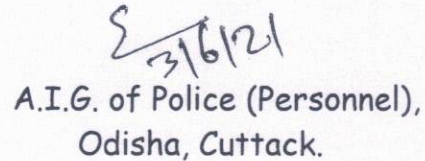 3/6/21
A.I.G. of Police (Personnel),
Odisha, Cuttack.